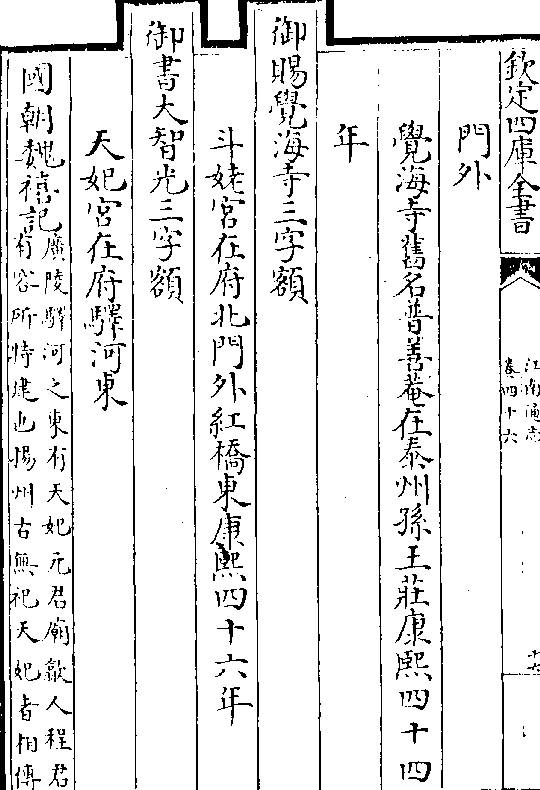 欽定四庫全書
江南通志
卷四十六
十六
門外
覺海寺舊名普善菴在泰州孫王莊康熙四十四
年
御賜覺海寺三字額
斗姥宮在府北門外紅橋東康熙四十六年
御書大智光三字額
天妃宮在府驛河東
國朝魏禧記廣陵驛河之東有天妃元君廟歙人程君
有容所特建也揚州古無祀天妃者相傳